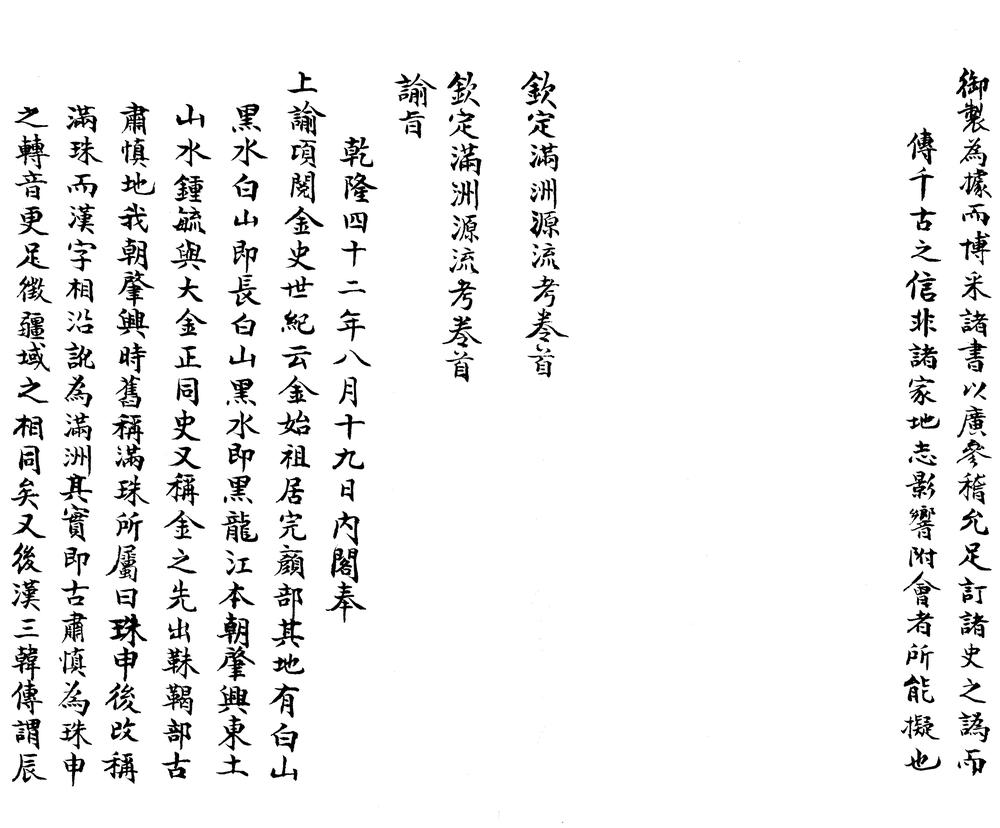 御製為據而博采諸書以廣參稽允足訂諸史之譌而
傳千古之信非諸家地志影響附會者所能擬也
欽定滿洲源流考卷首
欽定滿洲源流考卷首
諭旨
乾隆四十二年八月十九日內閣奉
上諭項閱金史世紀云金始祖居完顏部其地有白山
黑水白山即長白山黑水即黑龍江本朝肇興東土
山水鍾毓與大金正同史又稱金之先出靺鞨部古
肅慎地我朝肇興時舊稱滿珠所屬曰珠申後改稱
滿珠而漢字相沿訛為滿洲其實即古肅慎為珠申
之轉音更足徵疆域之相同矣又後漢三韓傳謂辰